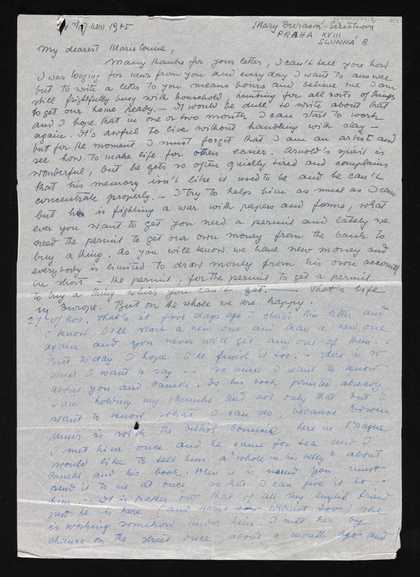 17 Nov 1945
Mary Duras
PRAHA XVIII
SLUNNÁ 8
My dearest Marie Louise,
Many thanks for your letter, I can't tell you how
I was longing for news from you and every day I want to answer
but to write a letter to you means hours and believe me I am
still frightfully busy with household, hunting for all sorts of things
to get our home ready. — It would be dull to write about that
and I hope that in one or two month I can start to work
again. It's awful to live without handling with clay —
but for the moment I must forget that I am an artist and
see how to make life for other easier. Arnold's spirit is
wonderful, but he gets so often quickly tired and complains
that his memory isn't like it used to be and he can't
concentrate properly. — I try to help him as much as I can
but is fighting a war with papers and forms, what
ever you want to get you need a permit and lately we
need the permit to get our own money from the bank to
buy a thing. As you will know we have new money and
everybody is limited to draw money from his own account
in short — the permit, for the permit to get a permit
to buy a thing which you can't get. — That's life
in Europe. But on the whole we are happy.
27 Nov. that's it few days ago I started this letter and
I know I'll start a new one and than a new one
again and you never will get any one of them.
But to day I hope I'll finish it too. — there is so
much I want to say — because I want to know
about you and Canetti. Is his book printed already
I am holding my thumbs and not only that but I
want to know what I can do, because
is with the British Council here in Prague
I met him once and he came for tea and I
would like to tell him a whole in his about
Canetti and his book. When is you must
send it to me at once so that I can give it to
him. — It is that of all my English friend
just he is here (and soon she
is working somehow under him. I met her by
chance on the street once about a month ago and